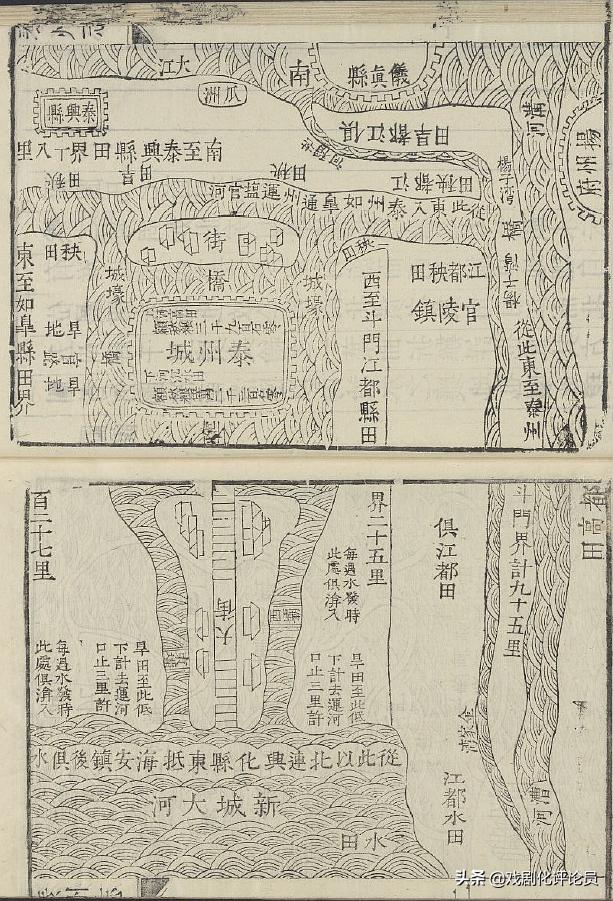 大江
南
儀真縣
瓜洲
泰興縣
南至泰興縣田界十八里
旱田
秧田
俱江都旱田
江都秧田
從此東入泰州如臯通州運鹽官河
揚州府
灣河
楊子灣
從此東至泰州
秧田
街
橋
城壕
城壕
泰州城
東至如臯縣田界
秧田
旱地
西至斗門江都縣田
江都秧田
官陵鎮
百二十七里
每過水發時
此處俱渰入
旱田至此低
下計去運河
口止三里許
大街
界二十五里
每過水發時
此處俱渰入
旱田至此低
下計去運河
口止三里許
俱江都田
斗門界計九十五里
都高田
江都水田
灣河
從此以北連興化縣東抵海安鎮後俱水
新城大河
水田
头条 @戏剧化评论员